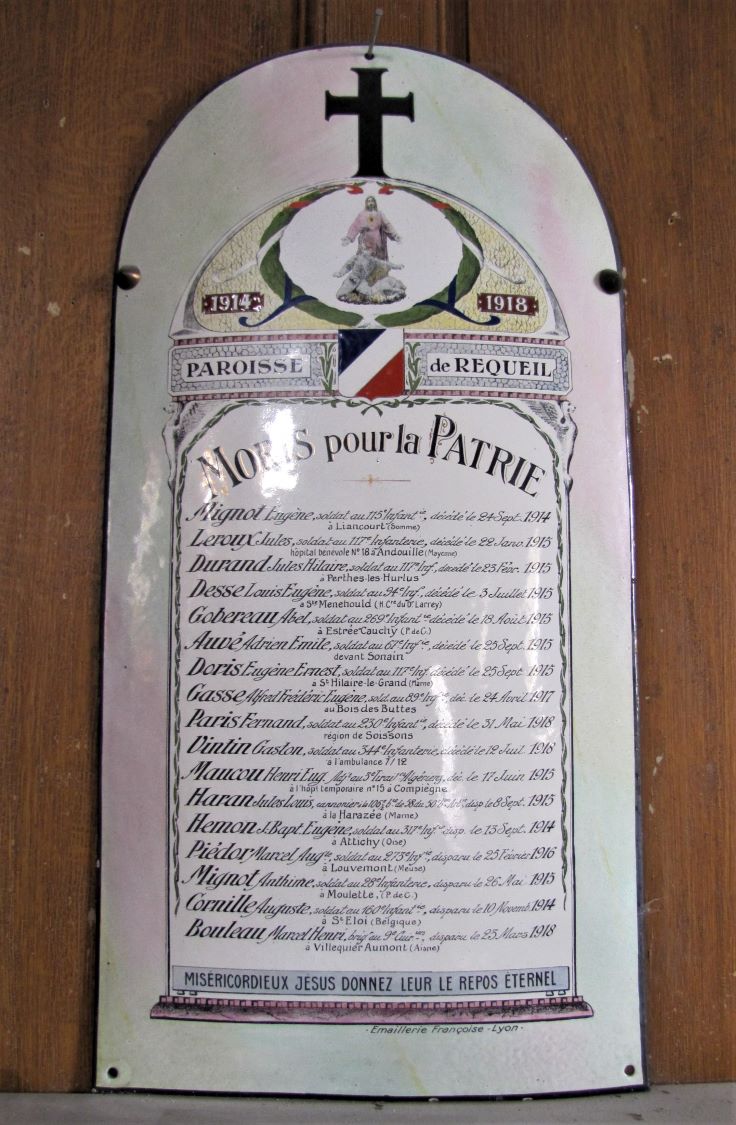 1914
1918
PAROISSE de REQUEIL
MORTS pour la PATRIE
Mignot Eugène, soldat au 115e Infantie, décédé le 24 Sept. 1914
à Liancourt (Somme)
Leroux Jules, soldat au 117e Infanterie, décédé le 22 Janv. 1915
hôpital bénévole No 18 à Andouille (Mayenne)
Durand Jules Hilaire, soldat au 117e Inf, décédé le 23 Févr. 1915
à Perthes-les-Hurlus
Desse Louis Eugène, soldat au 94e Inf, décédé le 3 Juillet 1915
à Ste Menehould (H. Cre du Dr Larrey)
Gobereau Abel, soldat au 269e Infantie décédé le 18 Août 1915
à Estrée-Cauchy (P. de C.)
Auvé Adrien Emile, soldat au 67e Infie, décédé le 25 Sept. 1915
devant Sonain
Doris Eugène Ernest, soldat au 117e Inf. décédé le 25 Sept. 1915
à St Hilaire-le-Grand (Marne)
Gasse Alfred Frédéric Eugène, sold. au 89e Infie, déc. le 24 Avril 1917
au Bois des Buttes
Paris Fernand, soldat au 230e Infantie, décédé le 31 Mai 1918
région de Soissons
Vintin Gaston, soldat au 344e Infanterie, décédé le 12 Juil. 1918
à l'ambulance 7/12
Maucou Henri Eug. Adjt au 3e tirailrs Algériens, déc. le 17 Juin 1915
à l'hôpl temporaire no 15 à Compiègne
Haran Jules Louis, canonnier à la disp. le 8 Sept. 1915
à la Harazée (Marne)
Hemon J. Bapt. Eugène, soldat au 317e Infie disp. le 13 Sept. 1914
à Attichy (Oise)
Piédor Marcel Auge, soldat au 273e Infie, disparu le 25 Février 1916
à Louvemont (Meuse)
Mignot Anthime, soldat au 28e Infanterie, disparu le 26 Mai 1915
à Moulette, (P. de C.)
Cornille Auguste, soldat au 160e Infantie, disparu le 10 Novemb. 1914
à St Eloi (Belgique)
Bouleau Marcel Henri, brigr au 9e Cuirers, disparu le 25 Mars 1918
à Villequier Aumont (Aisne)
MISÉRICORDIEUX JÉSUS DONNEZ LEUR LE REPOS ÉTERNEL
- Emaillerie Françoise - Lyon -